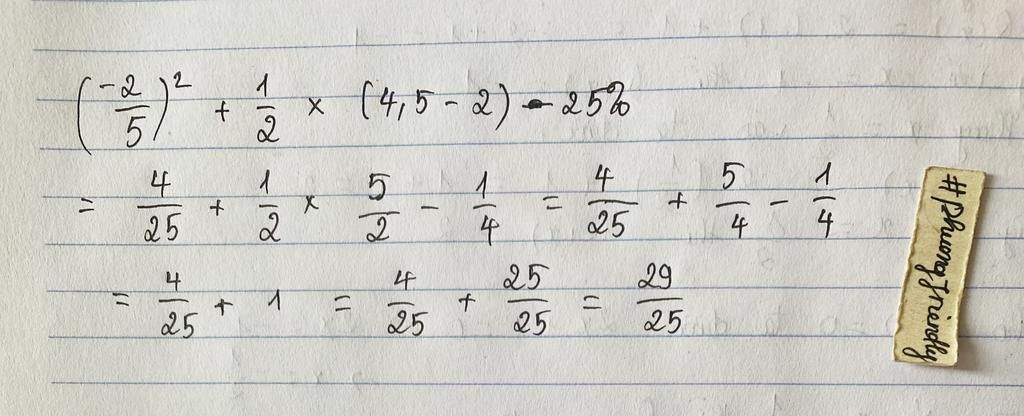 (-2/5)² + 1/2 × (4,5 - 2) - 25%
= 4/25 + 1/2 × 5/2 - 1/4 = 4/25 + 5/4 - 1/4
= 4/25 + 1 = 4/25 + 25/25 = 29/25
#PhuongFriendly